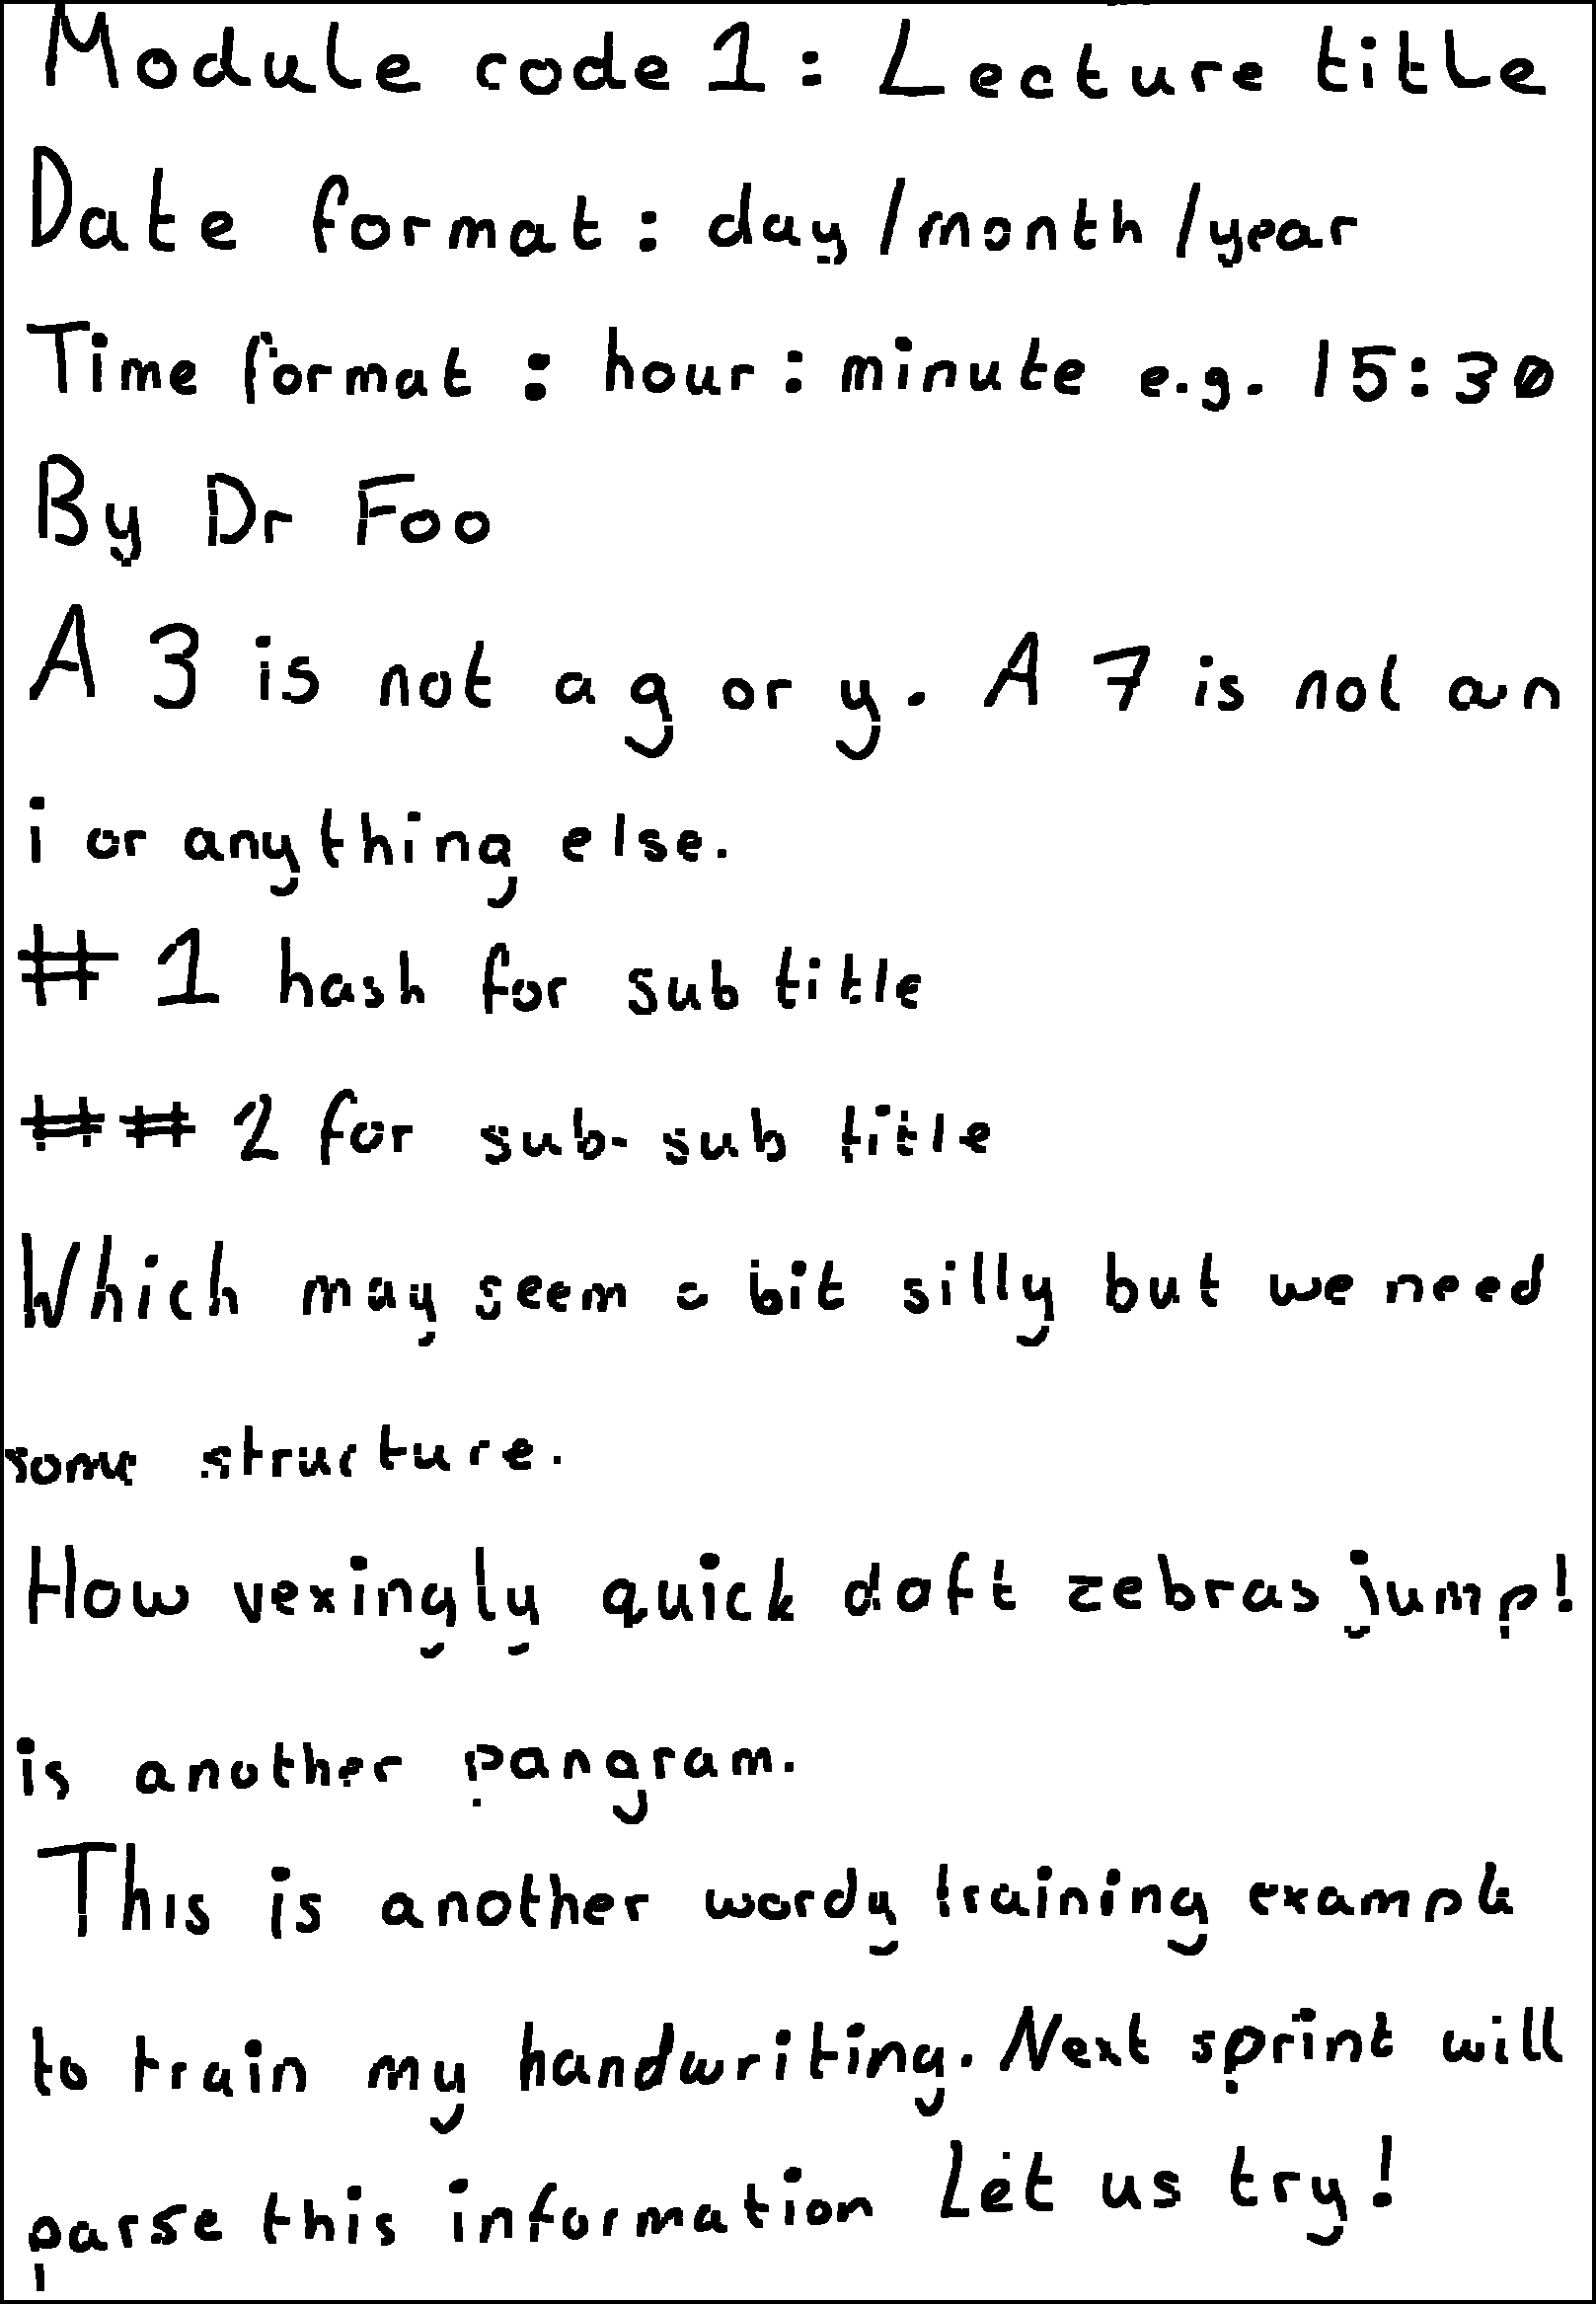 Module code 1: Lecture title
Date format: day/month/year
Time format: hour:minute e.g. 15:30
By Dr Foo
A 3 is not a g or y. A 7 is not an
i or anything else.
# 1 hash for sub title
## 2 for sub-sub title
Which may seem a bit silly but we need
some structure.
How vexingly quick daft zebras jump!
is another pangram.
This is another wordy training example
to train my handwriting. Next sprint will
parse this information Let us try!